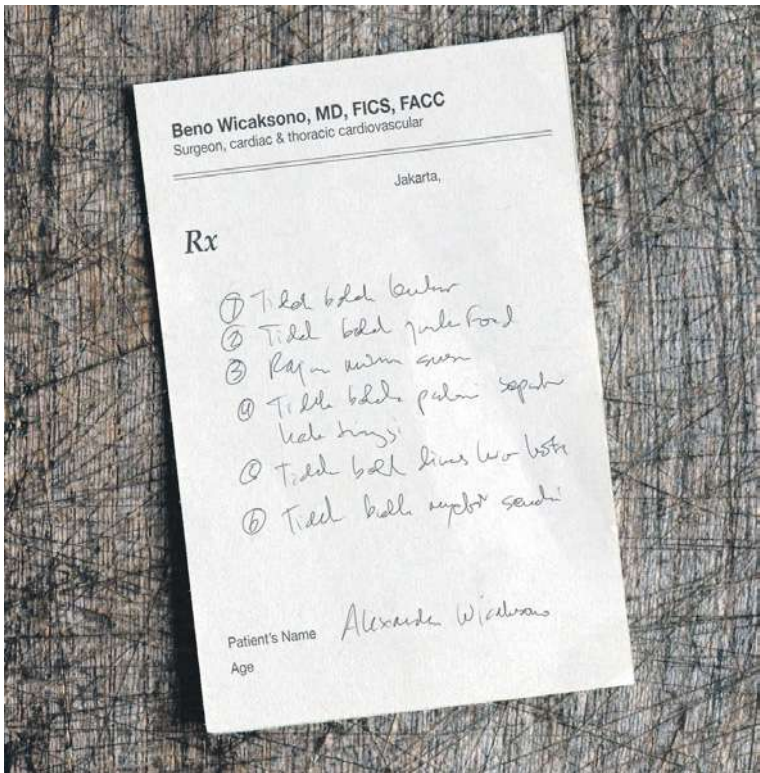 Beno Wicaksono, MD, FICS, FACC
Surgeon, cardiac & thoracic cardiovascular
Jakarta,
Rx
① Tidak boleh lembur
② Tidak boleh junk food
③ Rajin minum susu
④ Tidak boleh pakai sepatu
hak tinggi
⑤ Tidak boleh dinas luar kota
⑥ Tidak boleh nyetir sendiri
Patient's Name Alexandra Wicaksono
Age